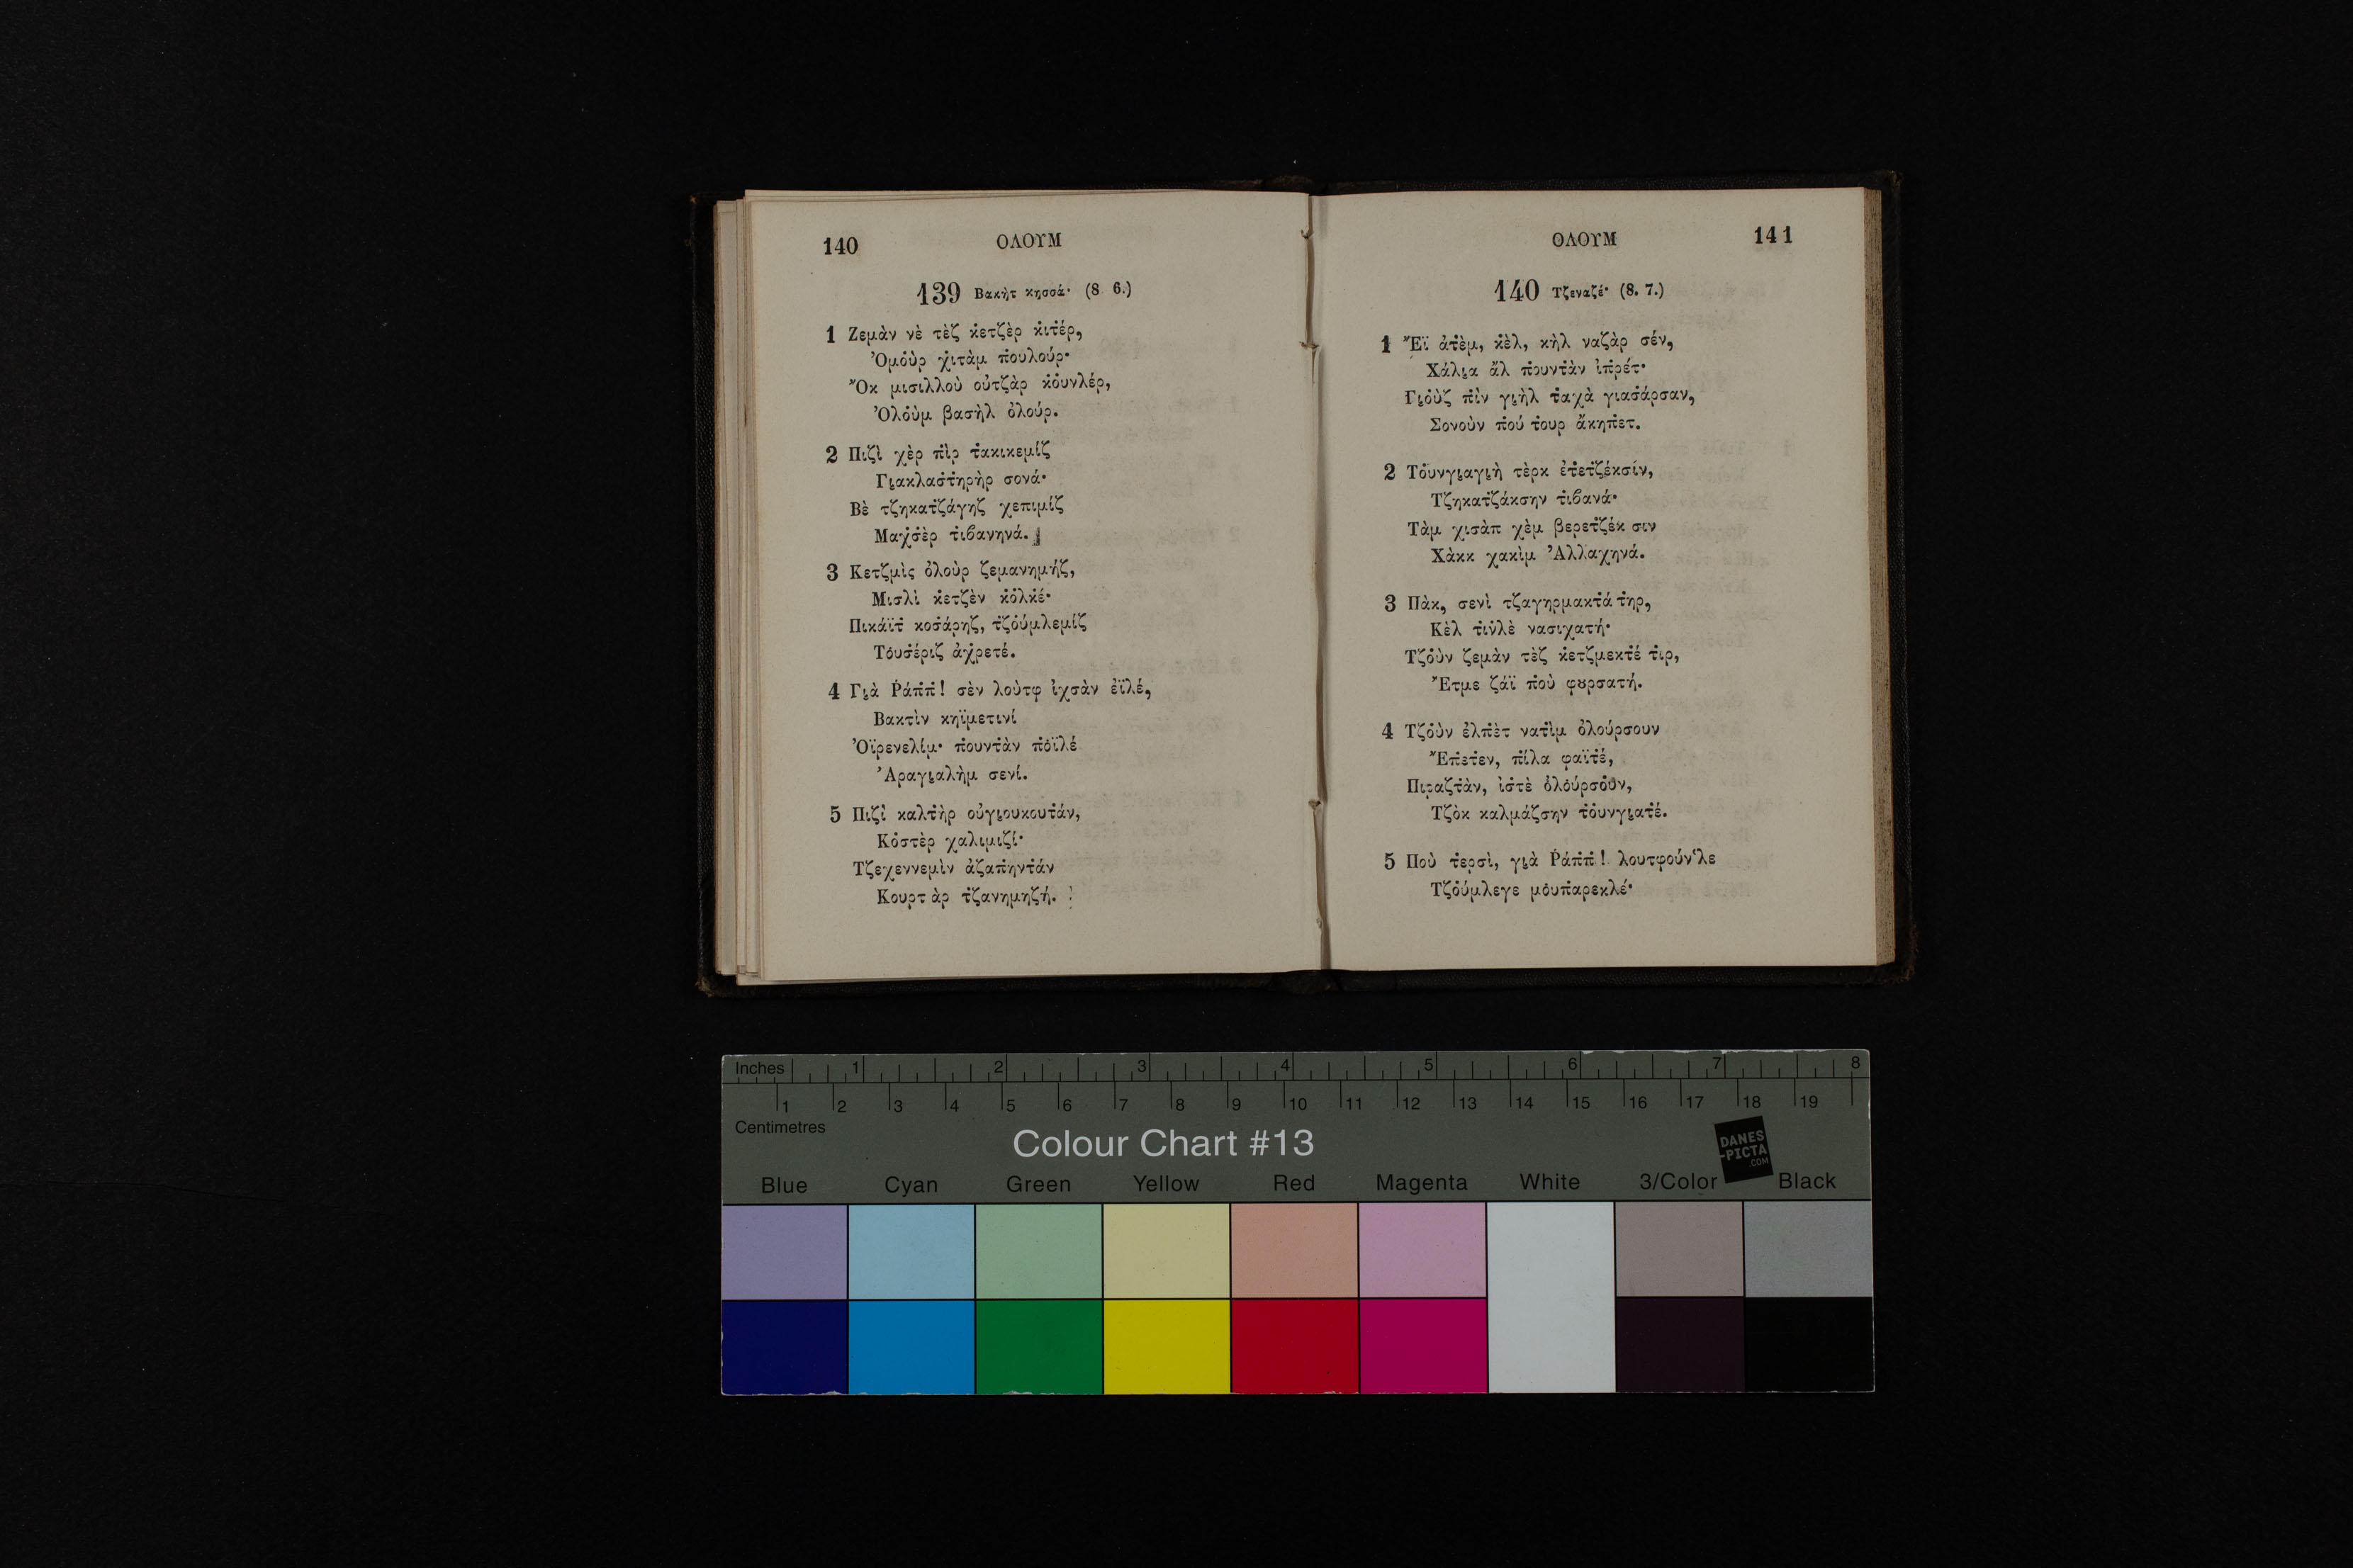 140
ΟΛΟΥΜ
139 Βακὴτ κησσά· (8 6.)
1 Ζεμὰν νὲ τὲζ κ̇ετζὲρ κ̇ιτ̇έρ,
Ὀμο̇ὺρ χ̇ιτὰμ π̇ουλούρ·
Ὂκ μισιλλοὺ οὐτζὰρ κ̇ο̇υνλέρ,
Ὀλο̇ὺμ βασὴλ ὀλούρ.
2 Πιζὶ χὲρ π̇ὶρ τ̇ακικεμίζ
Γιακλασ̇τ̇ηρὴρ σονά·
Βὲ τζηκατζάγηζ χεπιμίζ
Μαχσ̇ὲρ τ̇ιβανηνά.
3 Κετζμὶς ὀλοὺρ ζεμανημήζ,
Μισλὶ κ̇ετζὲν κ̇ο̇λκ̇έ·
Πικάϊτ̇ κοσ̇άρηζ, τζο̇ύμλεμίζ
Το̇υσ̇έριζ ἀχ̇ρετέ.
4 Γιὰ Ῥάπ̇π̇! σὲν λοὺτφ ἰχσὰν ἐϊλέ,
Βακτὶν κηϊμετινί
Ὀϊρενελίμ· π̇ουντ̇ὰν π̇ο̇ϊλέ
Ἀραγιαλὴμ σενί.
5 Πιζὶ καλτ̇ὴρ οὐγιουκουτ̇άν,
Κο̇στὲρ χαλιμιζί·
Τζεχεννεμὶν ἀζαπ̇ηντ̇άν
Κουρτὰρ τζανημηζή.
ΟΛΟΥΜ
141
140 Τζεναζέ· (8. 7.)
1 Ἔϊ ἀτ̇ὲμ, κ̇ὲλ, κὴλ ναζὰρ σέν,
Χάλια ἂλ π̇ουντ̇ὰν ἰπ̇ρέτ·
Γιο̇ὺζ π̇ὶν γιὴλ τ̇αχὰ γιασ̇άρσαν,
Σονοὺν π̇ού τ̇ουρ ἄκηπ̇ετ.
2 Το̇υνγιαγιὴ τὲρκ ἐτ̇ετζέκσίν,
Τζηκατζάκσην τ̇ιβανά·
Τὰμ χισὰπ χὲμ βερετζέκ σιν
Χὰκκ χακὶμ Ἀλλαχηνά.
3 Πὰκ, σενὶ τζαγηρμακτ̇ά τ̇ηρ,
Κὲλ τ̇ινλὲ νασιχατή·
Τζο̇ὺν ζεμὰν τὲζ κ̇ετζμεκτ̇έ τ̇ιρ,
Ἔτμε ζάϊ π̇οὺ φȣρσατή.
4 Τζο̇ὺν ἐλπ̇ὲτ νατ̇ὶμ ὀλούρσουν
Ἔπ̇ετ̇εν, π̇ίλα φαϊτ̇έ,
Πιραζτ̇ὰν, ἰσ̇τὲ ὀ̇λο̇ύρσο̇υν,
Τζὸκ καλμάζσην τ̇ο̇υνγιατ̇έ.
5 Ποὺ τ̇ερσὶ, γιὰ Ῥάπ̇π̇! λουτφούν'λε
Τζο̇ύμλεγε μο̇υπ̇αρεκλέ·
Inches 1 2 3 4 5 6 7 8
1 2 3 4 5 6 7 8 9 10 11 12 13 14 15 16 17 18 19
Centimetres
Colour Chart #13
DANES
-PICTA
.COM
Blue Cyan Green Yellow Red Magenta White 3/Color Black